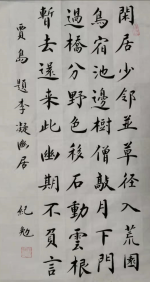 閑居少鄰並草径入荒園
鳥宿池邊樹僧敲月下門
過橋分野色移石動雲根
暫去還來此幽期不負言
賈島題李凝幽居 紀勉